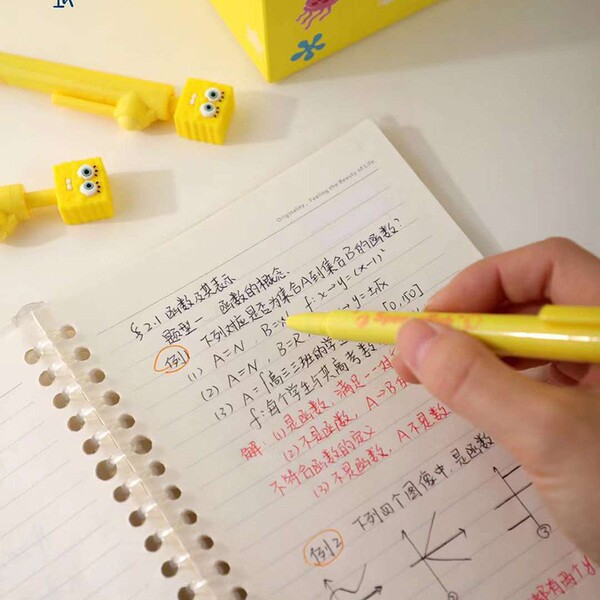 Originality, Feeling the Beauty of Life.
§2.1 函数及其表示
题型一 函数的概念.
例1 下列对应是否为集合A到集合B的函数?
(1) A=N B= f:x→y=(x-1)²
(2) A=N, B=R →y=±√x
(3) A={高三三班的学 [0,150]
f:每个学生与其高考数
解: (1)是函数, 满足一对
(2)不是函数, A→B
不符合函数的定义
(3)不是函数, A不是数
例2 下列四个图像中,是函数
③
都有两个y